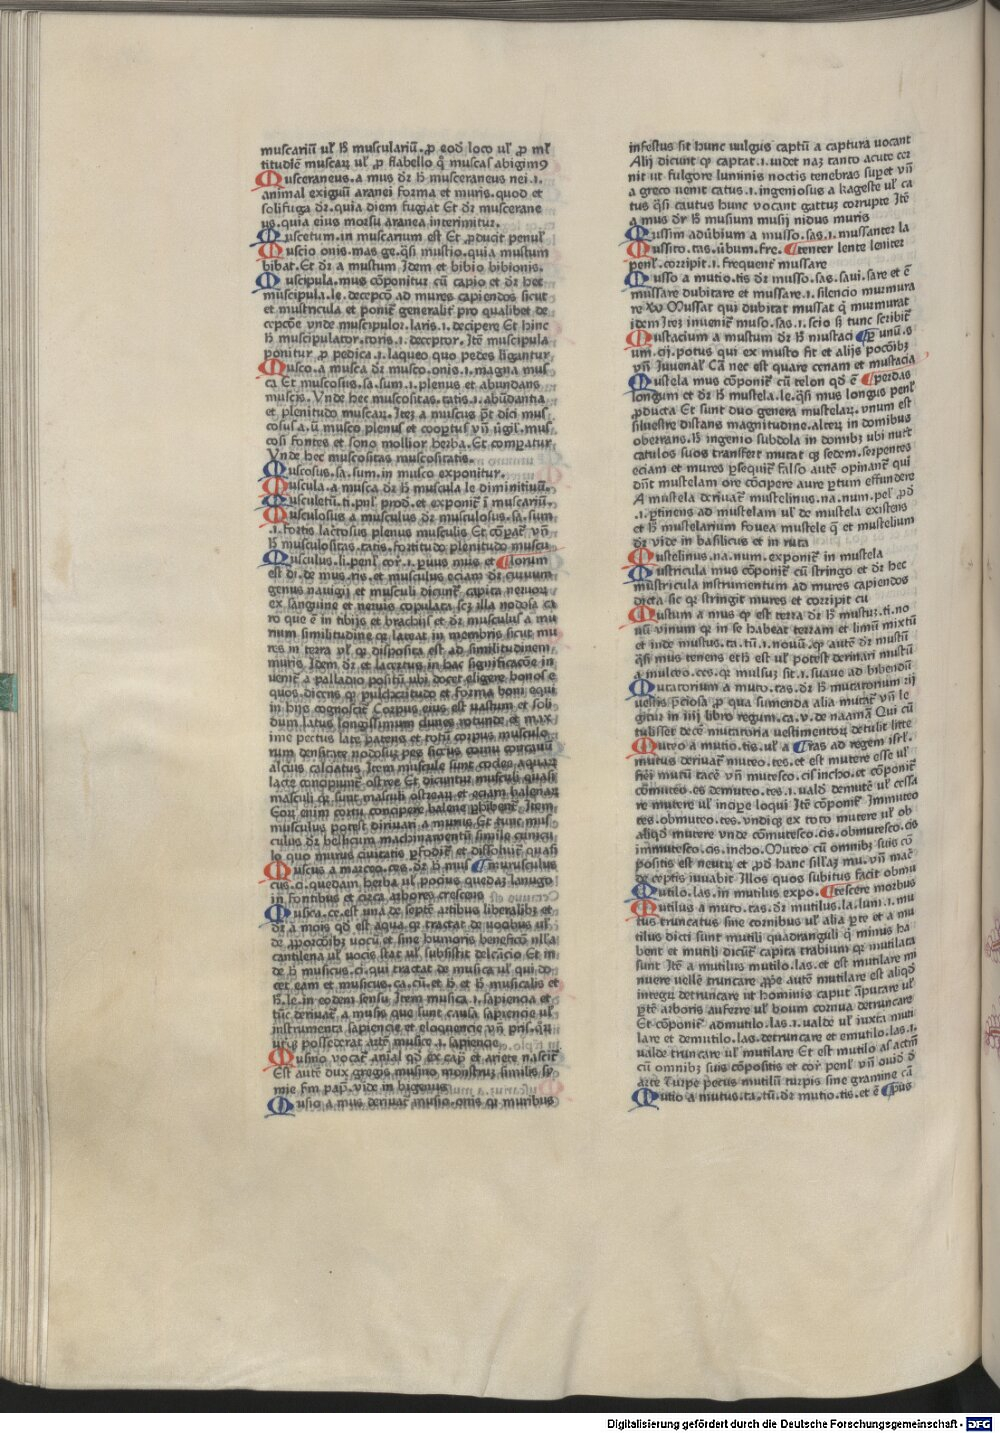 muscariū ul' h̄ muscularíū. ꝓ eod̄ loco ul' ꝓ ml'
titudīe muscaꝝ ul' ꝓ flabello q̄ muscas abigimꝰ
Musceraneus. a mus dr̄ h̄ musceraneus nei .i.
animal exiguū aranei forma et muris. quod et
solifuga dr̄. quia diem fugiat Et dr̄ muscerane
us. quia eius morsu aranea interimitur.
Muscetum. in muscarium est Et ꝓducit penul'
Muscio onis. mas. ge. q̄si mustio. quia mustum
bibat. Et dr̄ a mustum Idem et bibio bibionis.
Muscipula. mus cōponitur cū capio et dr̄ hec
muscipula. le. decepcō ad mures capiendos sicut
et mustricula et ponit᷑ generalit᷑ pro qualibet de
cepcōe vnde muscipulor. laris .i. decipere Et hinc
h̄ muscipulator. toris .i. deceptor. Itē muscipula
ponitur ꝓ pedica .i. laqueo quo pedes ligantur
Musco. a musca dr̄ musco. onis .i. magna mus
ca Et muscosus. sa. sum .i. plenus et abundans
muscis. Vnde hec muscositas. tatis .i. abūdantia
et plenitudo muscaꝝ. Iteꝫ a muscus p̄t dici mus
cosus a. ū musco plenus et coopertus vn̄ v̄gil'. mus
cosi fontes et sono mollior herba. Et comparatur
Vnde hec muscositas muscositatis.
Muscosus. sa. sum. in musco exponitur.
Muscula. a musca dr̄ h̄ muscula le diminitiuū.
Musculetū. ti. pnl' prod'. et exponit᷑ ī muscariū.
Musculosus a musculus dr̄ musculosus. sa. sum
.i. fortis lacertosus plenus musculis Et cōparat᷑ vn̄
h̄ musculositas. tatis. fortitudo plenitudo muscu
Musculus. li. penl' cor'. i. paruus mus et ¶lorum
est di. de mus. ris. et musculus eciam dr̄ curuum
genus nauigij et musculi dicunt᷑ capita neruoꝝ
ex sanguine et neruis copulata scꝫ illa nodosa ca
ro que ē in tibijs et brachijs et dr̄ musculus a mu
rium similitudine qꝛ lateat in membris sicut mu
res in terra ul' qꝛ disposita est ad similitudinem
muris. Idem dr̄ et lacertus in hac significacōe in
uenit᷑ a palladio positū ubi docet eligere bonos e
quos. dicens qꝫ pulchritudo et forma boni equi
in hijs cognoscit᷑ Corpus eius est uastum et soli
dum latus longissimum clunes rotunde et max
ime pectus late patens et totū corpus musculo
rum densitate nodosum pes siccus cornu concauū
alcius calciatus Item muscule sunt coclee aquaꝝ
lacte concipiunt᷑ ostree Et dicuntur musculi quasi
masculi qꝛ sunt masculi ostreaꝝ et eciam balenaꝝ
Eoꝝ enim coitu concipere balene phibent᷑. Item
musculus potest diriuari a munis Et tunc mus
culus dr̄ bellicum machinamentū simile cunicu
lo quo murus ciuitatis ꝑfodit᷑ et dissoluit᷑ quasi
Muscus a marceo. ces. dr̄ h̄ mus ¶murusculus
cus. ci. quedam herba ul' pocius quedaꝫ lanugo
in fontibus et circa arbores crescens
Musica. ce. est una de septē artibus liberalibꝫ et
dr̄ a mois qd̄ est aqua qꝛ tractat de uocibus ul'
de ꝓporcōibꝫ uocū et sine humoris beneficō nlla
cantilena ul' uocis stat ul' subsistit delcacio Et in
de h̄ musicus. ci. qui tractat de musica ul' qui do
cet eam et musicus. ca. cū. et h̄ et h̄ musicalis et
h̄. le. in eodem sensu Item musica .i. sapiencia et
tūc deriuat᷑ a musis que sunt causa sapiencie ul'
instrumenta sapiencie et eloquencie vn̄ pris. qui
utrqꝫ possederat autē musice .i. sapiencie
Musino vocat᷑ anial qd̄ ex cap̄ et ariete nascit᷑
Est autē dux gregis musino monstruꝫ similis se
mie fm pap̄. vide in bigenus
Musio a mus deriuat᷑ musio. onis qꝛ muribus
infestus sit hunc uulgus captū a captura vocant
Alij dicunt qꝫ captat .i. uidet naꝫ tanto acute cer
nit ut fulgore luminis noctis tenebras supet vn̄
a greco uenit catus .i. ingeniosus a kageste ul' ca
tus q̄si cautus hunc vocant gattuꝫ corrupte Itē
a mus dr̄ h̄ musium musij nidus muris
Mussim adūbium a musso. sas .i. mussanter la
Mussito. tas. ūbum. fre. ¶tenter lente leniter
penl'. corripit .i. frequent᷑ mussare
Musso a mutio. tis dr̄ musso. sas. saui. sare et ē
mussare dubitare et mussare .i. silencio murmura
re Xv Mussat qui dubitat mussat q̄ murmurat
idem Iteꝫ inuenit᷑ muso. sas .i. scio sꝫ tunc scribit᷑
Mustacium a mustum dr̄ h̄ mustaci ¶p unū. s
um. cij. potus qui ex musto fit et alijs pocōibꝫ
vn̄ Iuuenal' Cā nec est quare cenam et mustacia
Mustela mus cōponit᷑ cū telon qd̄ ē ¶perdas
longum et dr̄ h̄ mustela. le. q̄si mus longus penl'
ꝓducta Et sunt duo genera mustelaꝝ. vnum est
siluestre distans magnitudine. alteꝝ in domibus
oberrans. h̄ ingenio subdola in domibꝫ ubi nut᷑t
catulos suos transfert mutat qꝫ sedem. serpentes
eciam et mures ꝑsequit᷑ falso autē opinant᷑ qui
dn̄t mustelam ore cōcipere aure partum effundere
A mustela deriuat᷑ mustelinus. na. num. pel' ꝓd'
.i. ꝑtinens ad mustelam ul' de mustela existens
et h̄ mustelarium fouea mustele q̄ et mustelium
dr̄ vide in basilicus et in ruta
Mustelinus. na. num. exponit᷑ in mustela
Mustricula mus cōponit᷑ cū stringo et dr̄ hec
mustricula instrumentum ad mures capiendos
dicta sic qꝛ stringit mures et corripit cu
Mustum a mus qꝫ est terra dr̄ h̄ mustuꝫ. ti. no
uū vinum qꝛ in se habeat terram et limū mixtū
et inde mustus. ta. tū .i. nouū. qꝫ autē dr̄ mustū
q̄si mus tenens eth̄ est ul' potest deriuari mustū
a mulceo. ces. qꝛ mulsuꝫ sit .i. suaue ad bibendū
Mutatorium a muto. tas. dr̄ h̄ mutatorium rij
uestis p̄ciosa. ꝓ qua sumenda alia mutat᷑ vn̄ le
gitur in iiij libro regum. ca. v. de naamā Qui cū
tulisset decē mutatoria vestimentoꝝ detulit litte
Muteo a mutio. tis. ul' a ¶ras ad regem isrl'.
mutus deriuat᷑ muteo. tes. et est mutere esse ul'
fieri mutū tacē vn̄ mutesco. cis incho. et cōponit᷑
cōmuteo. es demuteo. tes .i. uald' demutē ul' cessa
re mutere ul' incipe loqui Itē cōponit᷑ Immuteo
tes. obmuteo. tes. vndiqꝫ ex toto mutere ul' ob
aliqd̄ mutere vnde cōmutesco. cis. obmutesco. cis
immutesco. cis. incho. Muteo cū omnibꝫ suis cō
positis est neutꝝ et ꝓd' hanc sillaꝫ mu. vn̄ macͤ
de ceptis iuuabit Illos quos subitus facit obmu
Mutilo. las. in mutilus expo. ¶tescere morbus
Mutilus a muto. tas. dr̄ mutilus. la. lum .i. mu
tus truncatus sine cornibus ul' alia ꝑte et a mu
tilus dici sunt mutili quadranguli q̄ minus ha
bent et mutili dicūt᷑ capita trabium qꝛ mutilata
sunt Itē a mutilus mutilo. las. et est mutilare mi
nuere uellē truncare. ꝓpe autē mutilare est aliqd̄
integꝝ detruncare ut hominis caput āputare ul'
ꝑtē arboris auferre ul' boum cornua detruncare
Et cōponit᷑ admutilo. las .i. ualde ul' iuxta muti
lare et demutilo. las. detruncare et emutilo. las .i.
ualde truncare ul' mutilare Et est mutilo as actm̄
cū omnibꝫ suis cōpositis et cor' penl' vn̄ ouid' d'
arte Turpe pecus mutilū turpis sine gramine cā
Mutio a mutus. ta. tū. dr̄ mutio. tis. et ē ¶pus
Digitalisierung gefördert durch die Deutsche Forschungsgemeinschaft - DFG